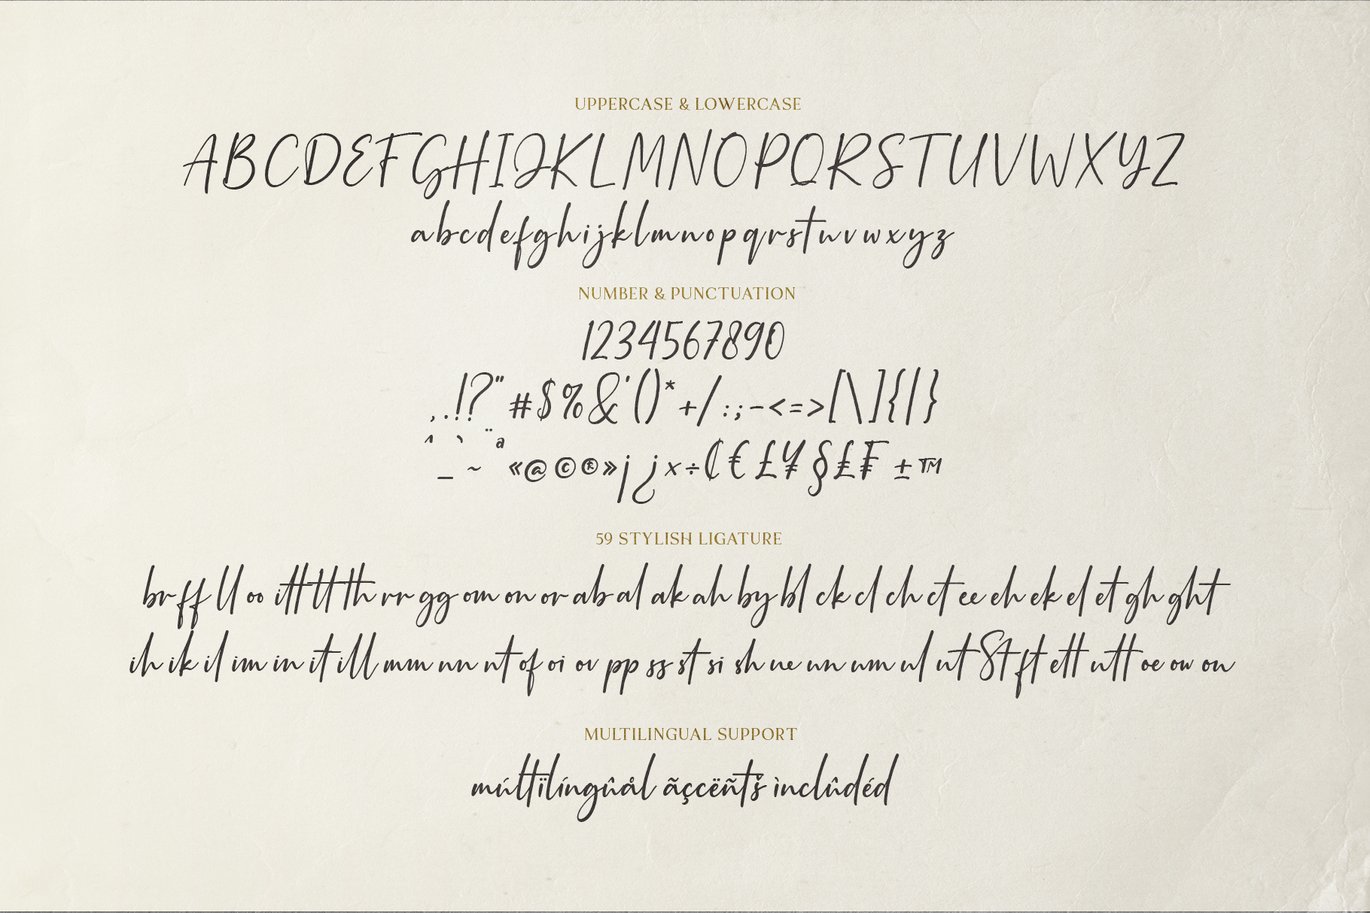 UPPERCASE & LOWERCASE
ABCDEFGHIJKLMNOPQRSTUVWXYZ
abcdefghijklmnopqrstuvwxyz
NUMBER & PUNCTUATION
1234567890
,.!?"#$%&'()*+/:;-<=>[\]{|}
^ ` ¨ª
_ ~ «@©®»¡¿×÷₵€£¥§₤₣±™
59 STYLISH LIGATURE
br ff ll oo itt tt th rr gg om on or ab al ak ah by bl ck cl ch ct ee eh ek el et gh ght
ih ik il im in it ill mm nn nt of oi ov pp ss st si sh ue un um ul ut St ft ett utt oe ow ou
MULTILINGUAL SUPPORT
múltïlíngûål ãçcëñts̊ ìnclûdéd